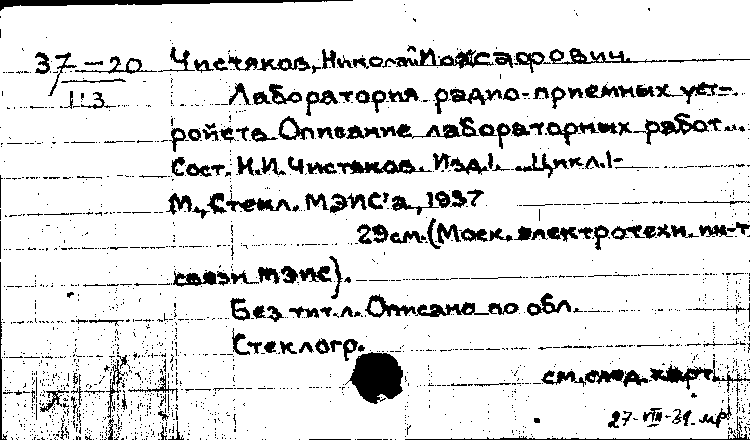 37-20 Чистяков, Николай Иоасафович.
1:3 Лаборатория радио-приемных уст-
ройств Описание лабораторных работ...
Сост. Н.И. Чистяков. Изд.1. ...Цикл.1-
М., Стекл. МЭИС'а, 1937
29см. (Моск. электротехн. ин-т
связи МЭИС).
Без тит.л. Описано по обл.
Стеклогр.
см. след. карт.
27-VIII-39. мр